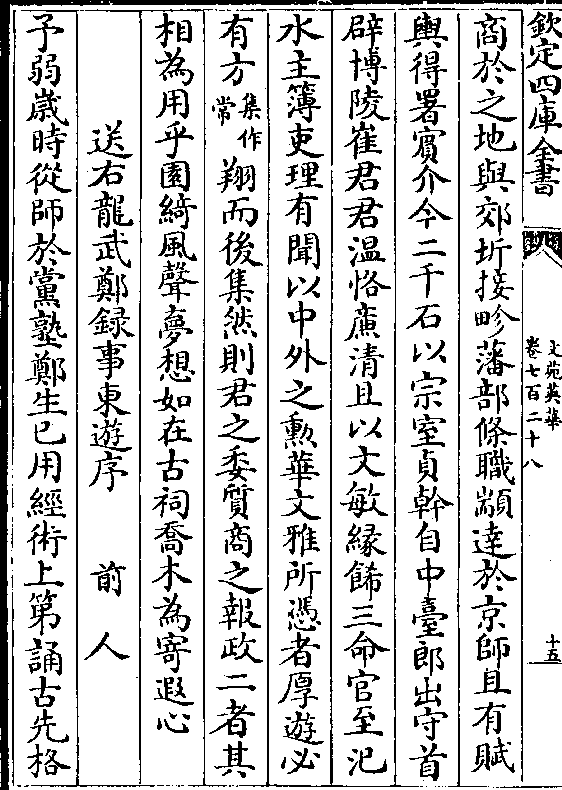 欽定四庫全書
文苑英華
卷七百二十八
十五
商於之地與郊圻接畛藩部條職顓達於京師且有賦
輿得署賓介今二千石以宗室貞幹自中臺郎出守首
辟博陵崔君君溫恪廉清且以文敏緣餙三命官至汜
水主簿吏理有聞以中外之勲華文雅所憑者厚遊必
有方集作常翔而後集然則君之委質商之報政二者其
相為用乎園綺風聲夢想如在古祠喬木為寄遐心
送右龍武鄭録事東遊序 前人
予弱嵗時從師於黨塾鄭生已用經術上第誦古先格